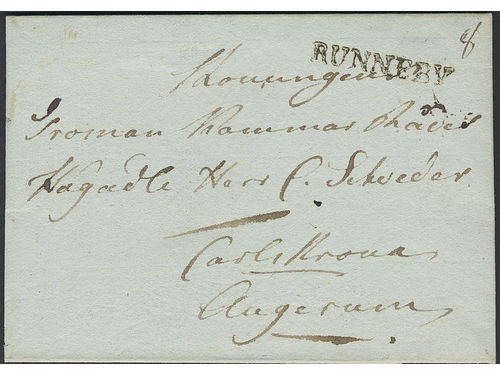 8
RUNNEBY
Konungens
Troman Kammar Rådet
Högädle Herr C. Schröder
Carls Krona
Augerum